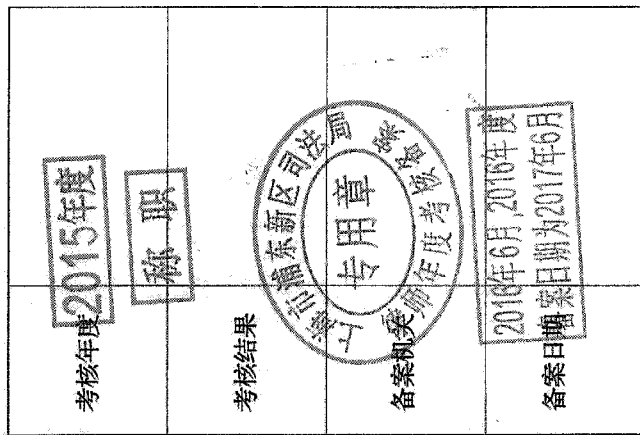 考核年度
2015年度
称职
考核结果
备案机关
上海市浦东新区司法局
专用章
律师年度考核备案
备案日期
2016年6月,2016年度
备案日期为2017年6月